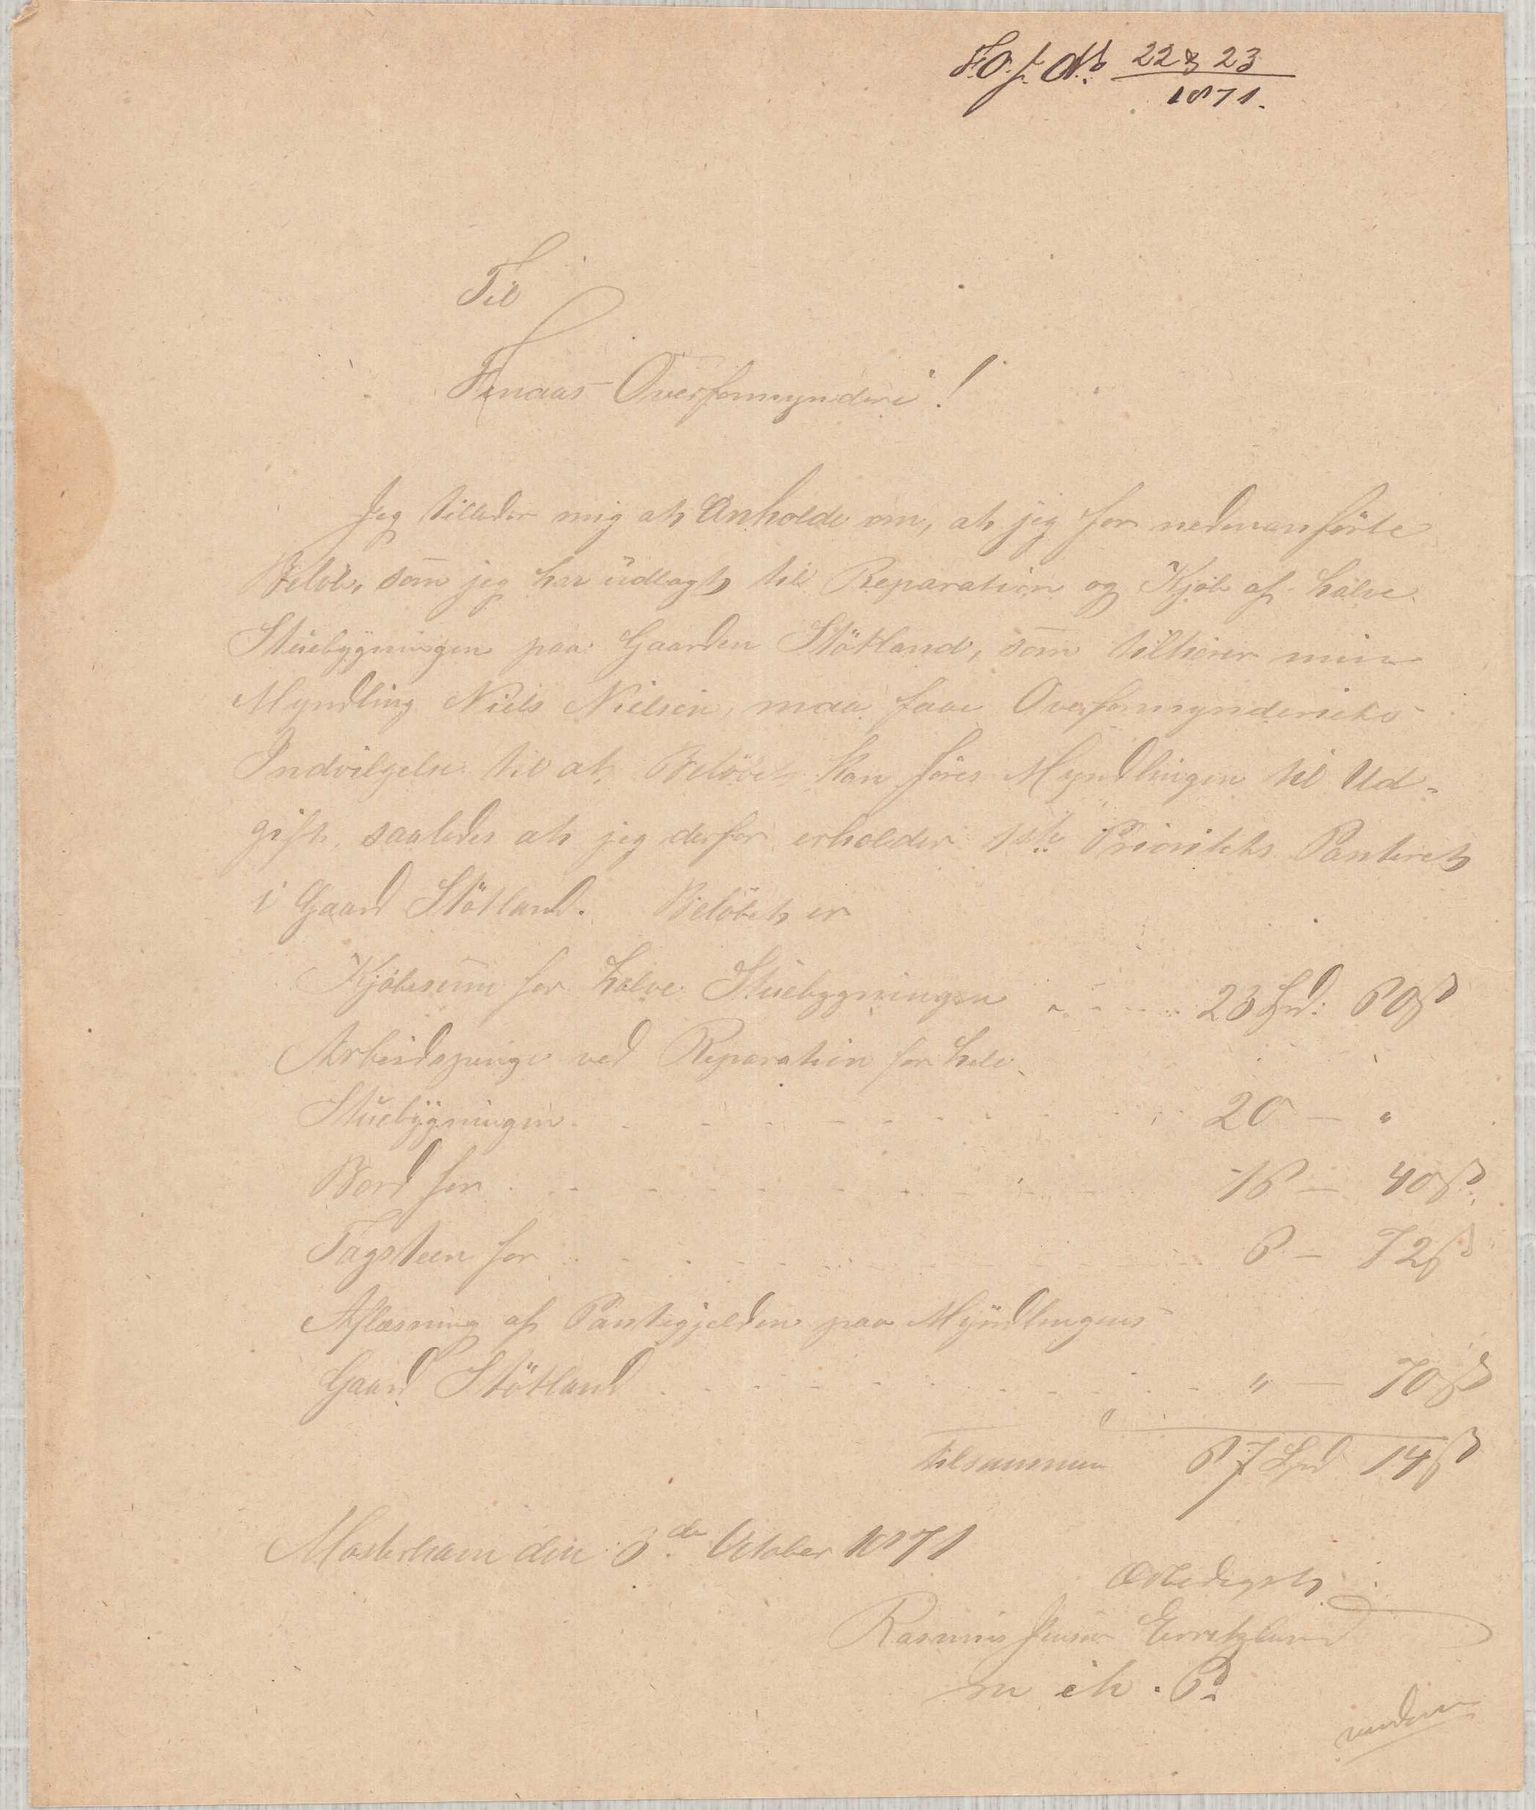 F.O.f. Nº 22 & 23
1871.
Til
Finaas Overformynderi!
Jeg tillader mig at Anholde om, at jeg for nedenanförte
Belöb, som jeg har udlagt til Reparation og Kjöb af halve
Stuebygningen paa Gaarden Stötland, som tilhörer min
Myndling Niels Nielsen, maa faae Overformynderiets
Indvilgelse til at Belöbet kan föres Myndlingen til Ud-
gift, saaledes at jeg derfor erholder 1ste Prioritets Panteret
i Gaard Stötland. Belöbet er
Kjöbesum for halve Stuebygningen . . . . . 23 Spd: 60 ß
Arbeidspenge ved Reparation for hele
Stuebygningen . . . . . . . . . . 20 — "
Bord for . . . . . . . . . . . . 16 — 40 ß
Tagsteen for . . . . . . . . . . . 6 — 72 ß
Aflæsning af Pantegjelden paa Myndlingens
Gaard Stötland . . . . . . . . . . " — 70 ß
tilsammen 67 Spd 14 ß
Mosterhavn den 3de October 1871
Ærbødigst
Rasmus Jensen
m i h . P.
venden